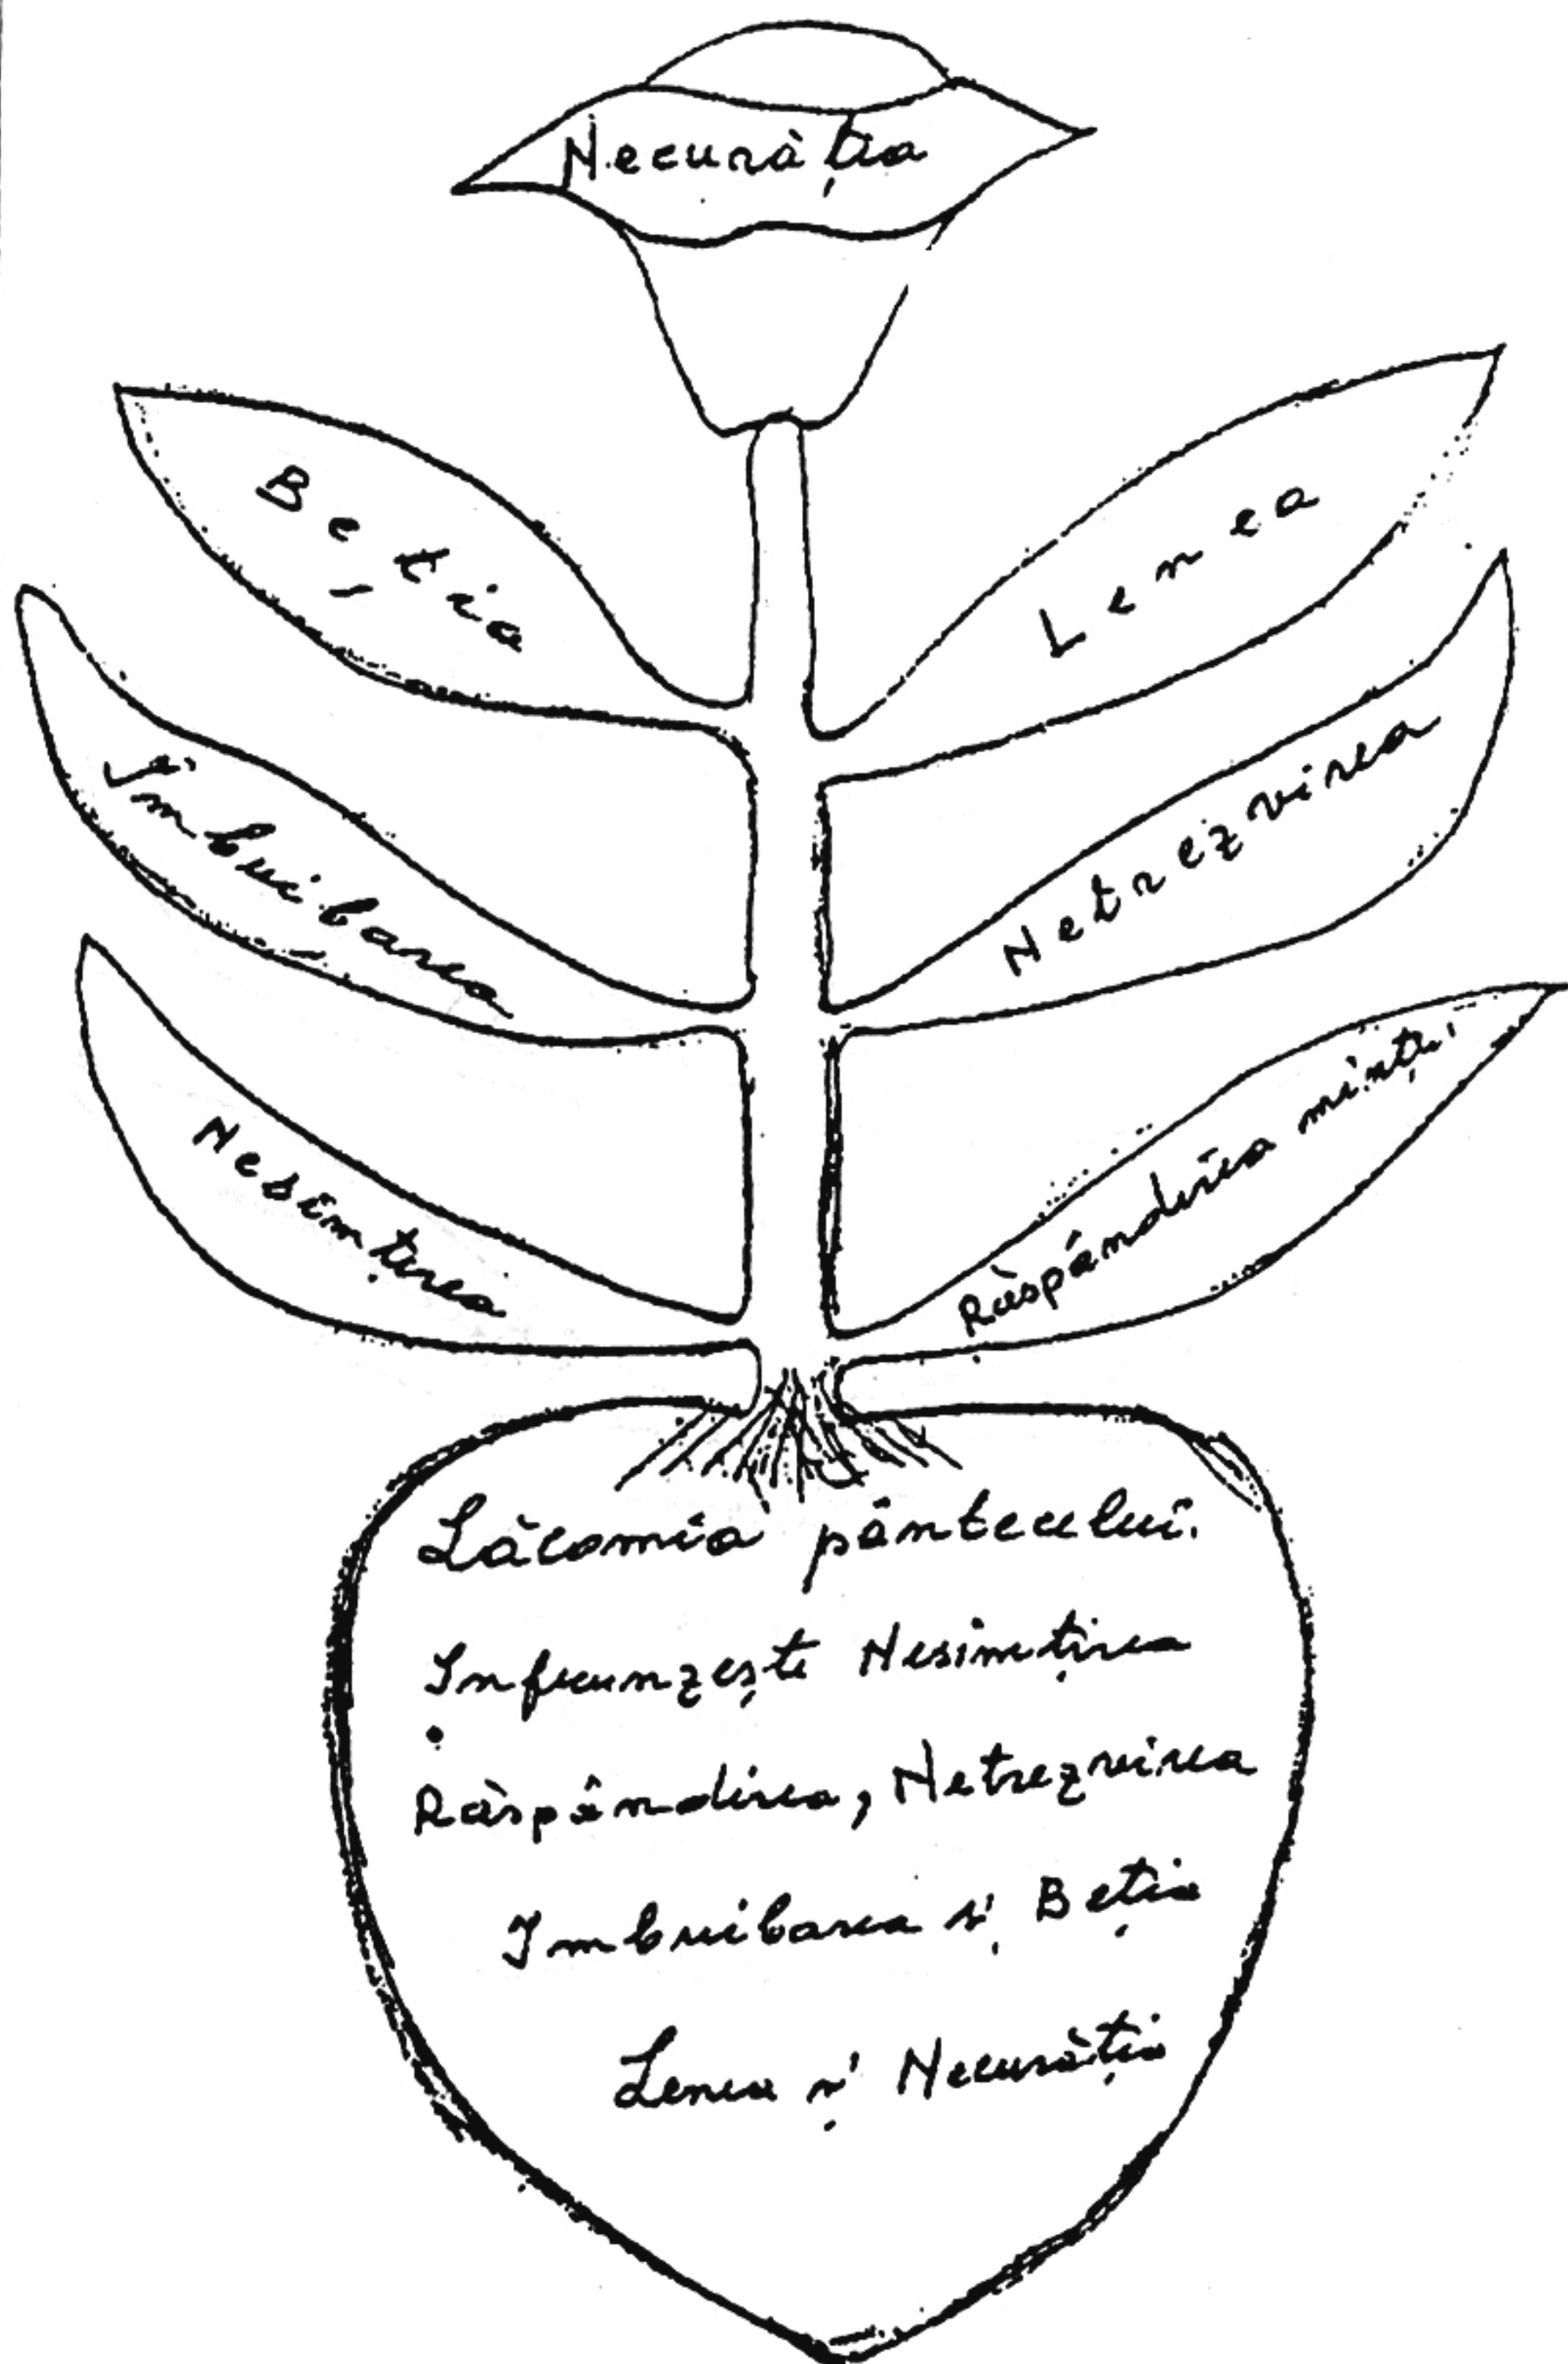 Necurăția
Beția
Lenea
Îmbuibarea
Netrezvirea
Nesimțirea
Răspândirea minții
Lăcomia pântecului.
Infrunzește Nesimțirea
Răspândirea, Netrezvirea
Imbuibarea și Beția
Lenea și Necurăția